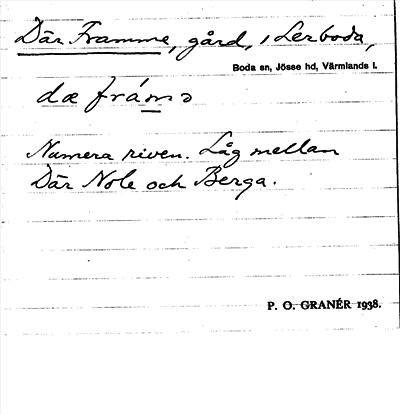 Där Framme, gård, i Lerboda,
Boda sn, Jösse hd, Värmlands l.
dæ frámə
Numera riven. Låg mellan
Där Nole och Berga.
P. O. GRANÉR 1938.